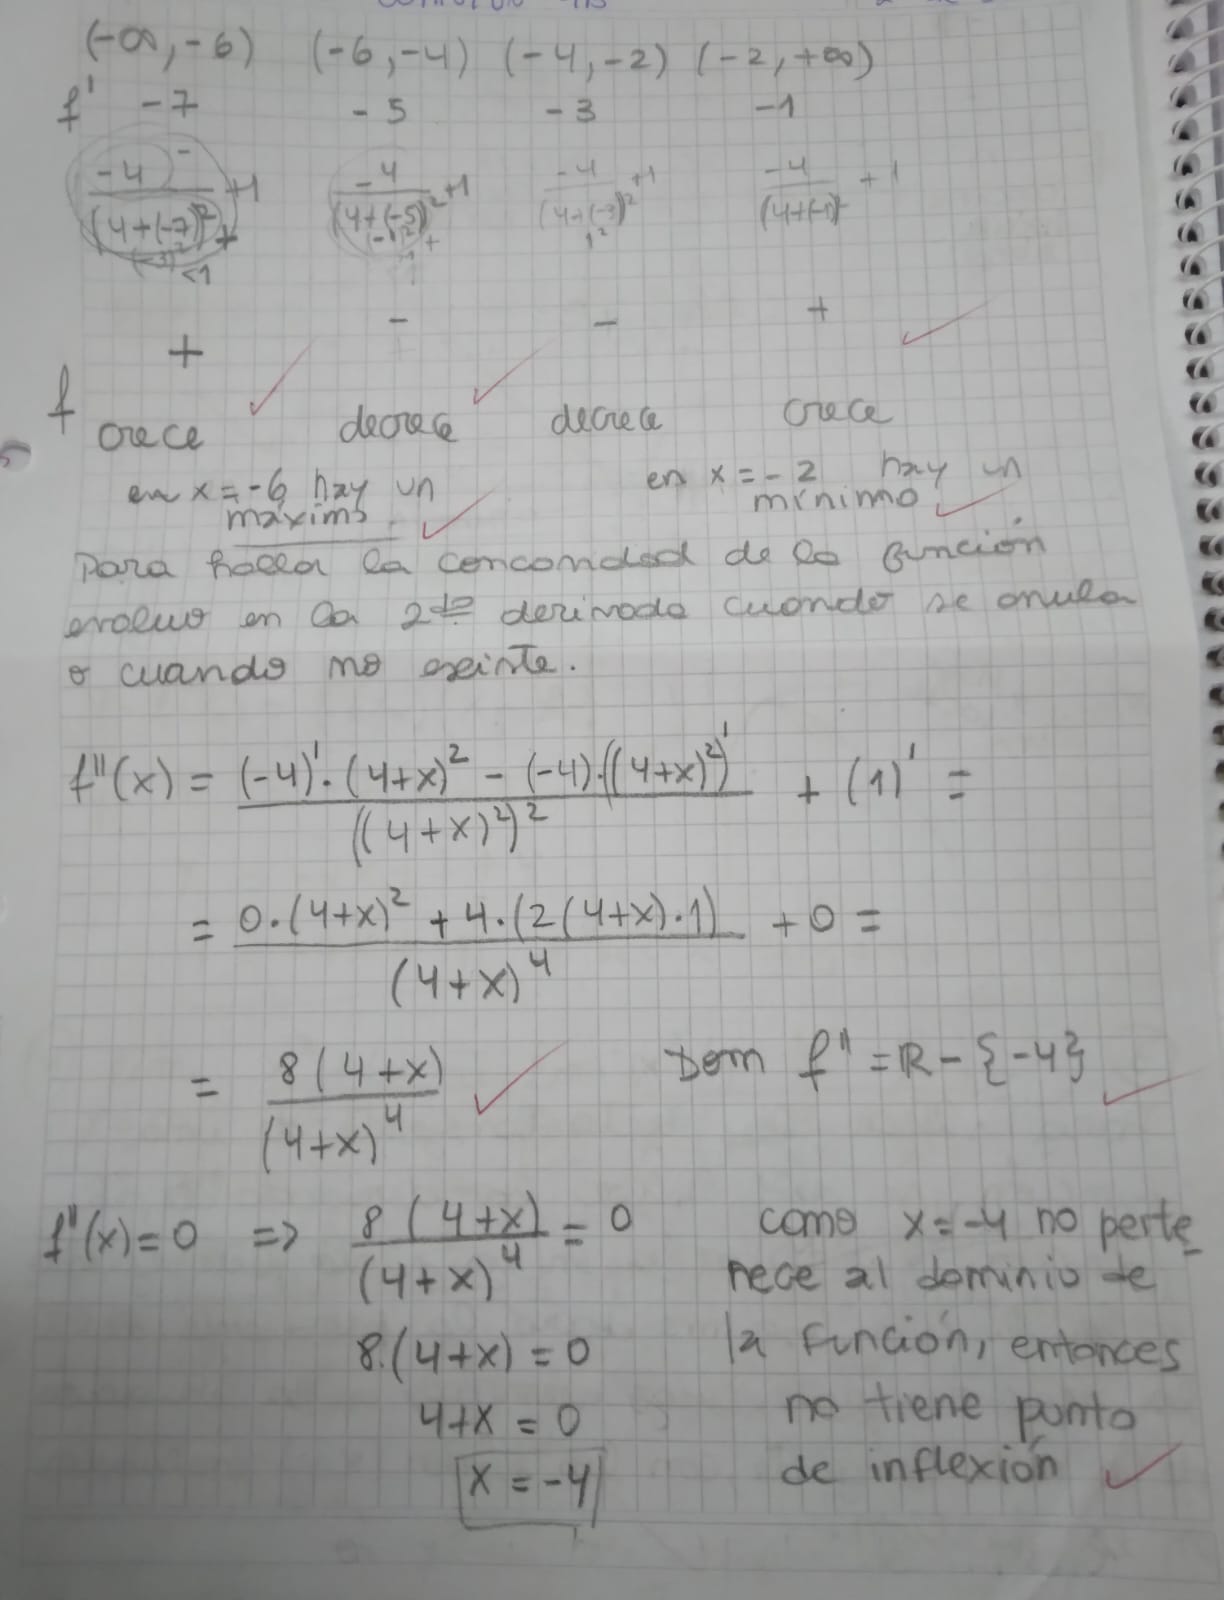 (-∞, -6) (-6, -4) (-4, -2) (-2, +∞)
f' -7 -5 -3 -1
-4/(4+(-7))² +1 -4/(4+(-5))² +1 -4/(4+(-3))² +1 -4/(4+(-1))² + 1
(-3)² (-1)² + 1²
<1
+ - - +
f crece decrece decrece crece
en x = -6 hay un en x = -2 hay un
máximo. mínimo.
Para hallar la concavidad de la función
evaluo en la 2da derivada cuando se anula
o cuando no existe.
f''(x) = ((-4)' · (4+x)² - (-4) · ((4+x)²)')/((4+x)²)² + (1)' =
= (0·(4+x)² + 4·(2(4+x)·1))/(4+x)⁴ + 0 =
= 8(4+x)/(4+x)⁴ Dom f'' = ℝ - {-4}
f''(x) = 0 => 8(4+x)/(4+x)⁴ = 0 como x = -4 no perte
nece al dominio de
8.(4+x) = 0 la función, entonces
4+x = 0 no tiene punto
x = -4 de inflexión